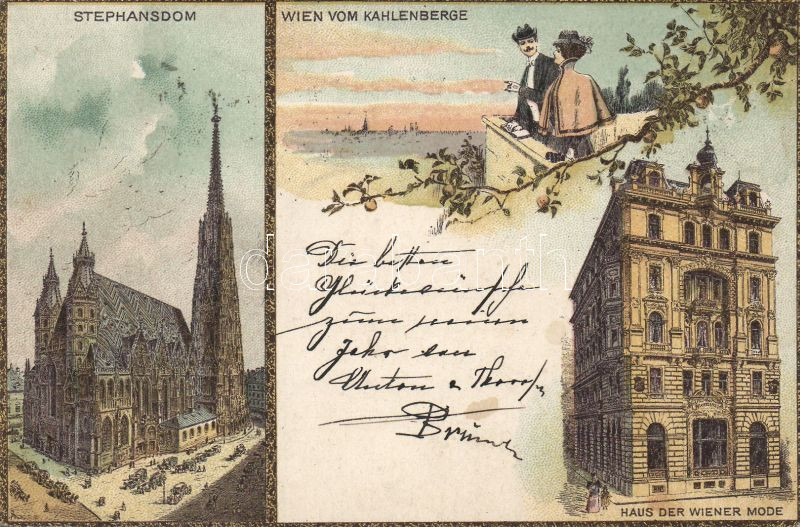 STEPHANSDOM
WIEN VOM KAHLENBERGE
Die besten
Glückwünsche
zum neuen
Jahr von
Anton &
HAUS DER WIENER MODE